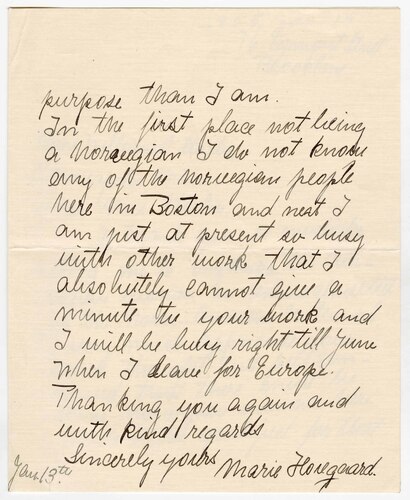 purpose than I am.
In the first place not being
a Norwegian I do not know
any of the norwegian people
here in Boston and next I
am just at present so busy
with other work that I
absolutely cannot give a
minute to your work and
I will be busy right till June
when I leave for Europe.
Thanking you again and
with kind regards
Sincerely yours
Marie Hovgaard.
Jan. 13th